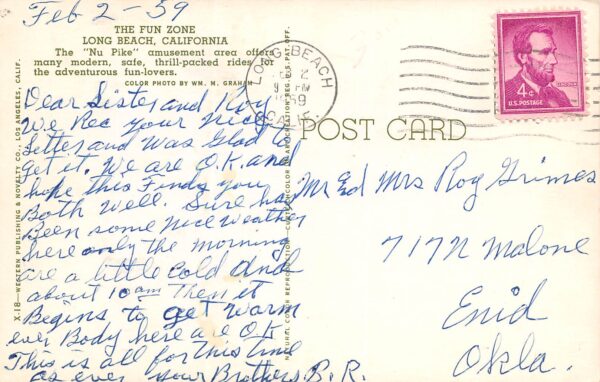 Feb 2-59
THE FUN ZONE
LONG BEACH, CALIFORNIA
The "Nu Pike" amusement area offers
many modern, safe, thrill-packed rides for
the adventurous fun-lovers.
COLOR PHOTO BY WM. M. GRAHAM
Dear Sister and Roy
We Rec your Nice
Letter and was Glad to
get it. We are O.K. and
hope this Finds you
Both well. Sure has
Been some Nice weather
here only the morning
are a little cold and
about 10 am Then it
Begins to get warm
ever Body here are OK
This is all for this time
as ever your Brothers B. R.
X-18—WESTERN PUBLISHING & NOVELTY CO., LOS ANGELES, CALIF.
NATURAL COLOR REPRODUCTION
REG. U.S. PAT. OFF.
LONG BEACH
2
PM
59
CALIF.
4¢
U.S. POSTAGE
POST CARD
Mr Ed Mrs Roy Grimes
717 N Malone
Enid
Okla.